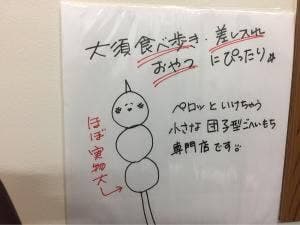 大須食べ歩き・差し入れ
おやつ にぴったり♪
ペロッといけちゃう
小さな団子型ごへいもち
専門店です
ほぼ実物大